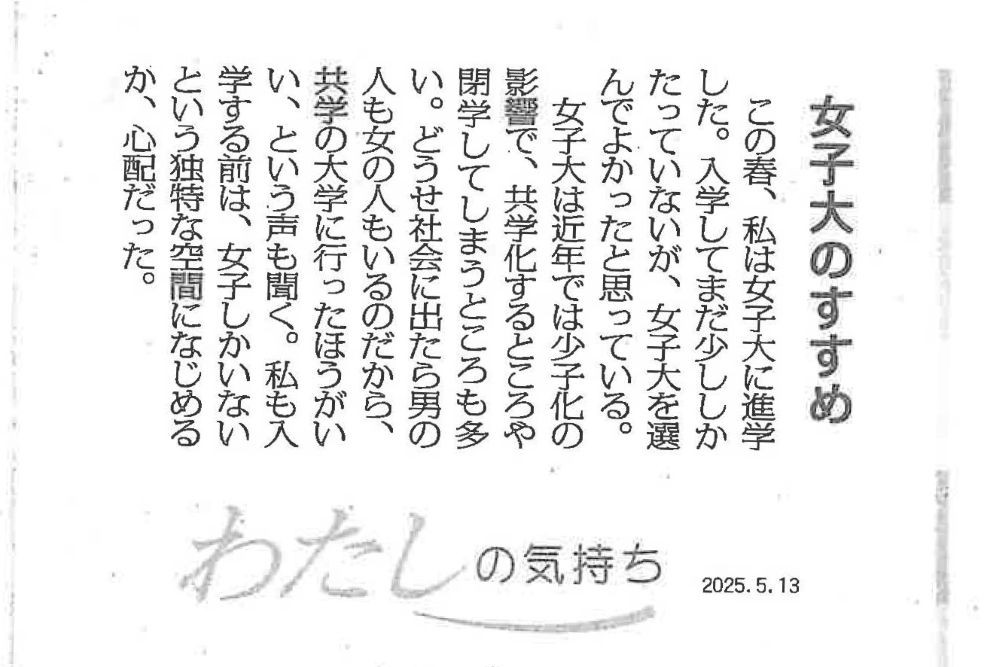 女子大のすすめ
この春、私は女子大に進学
した。入学してまだ少ししか
たっていないが、女子大を選
んでよかったと思っている。
女子大は近年では少子化の
影響で、共学化するところや
閉学してしまうところも多
い。どうせ社会に出たら男の
人も女の人もいるのだから、
共学の大学に行ったほうがい
い、という声も聞く。私も入
学する前は、女子しかいない
という独特な空間になじめる
か、心配だった。
わたしの気持ち
2025.5.13